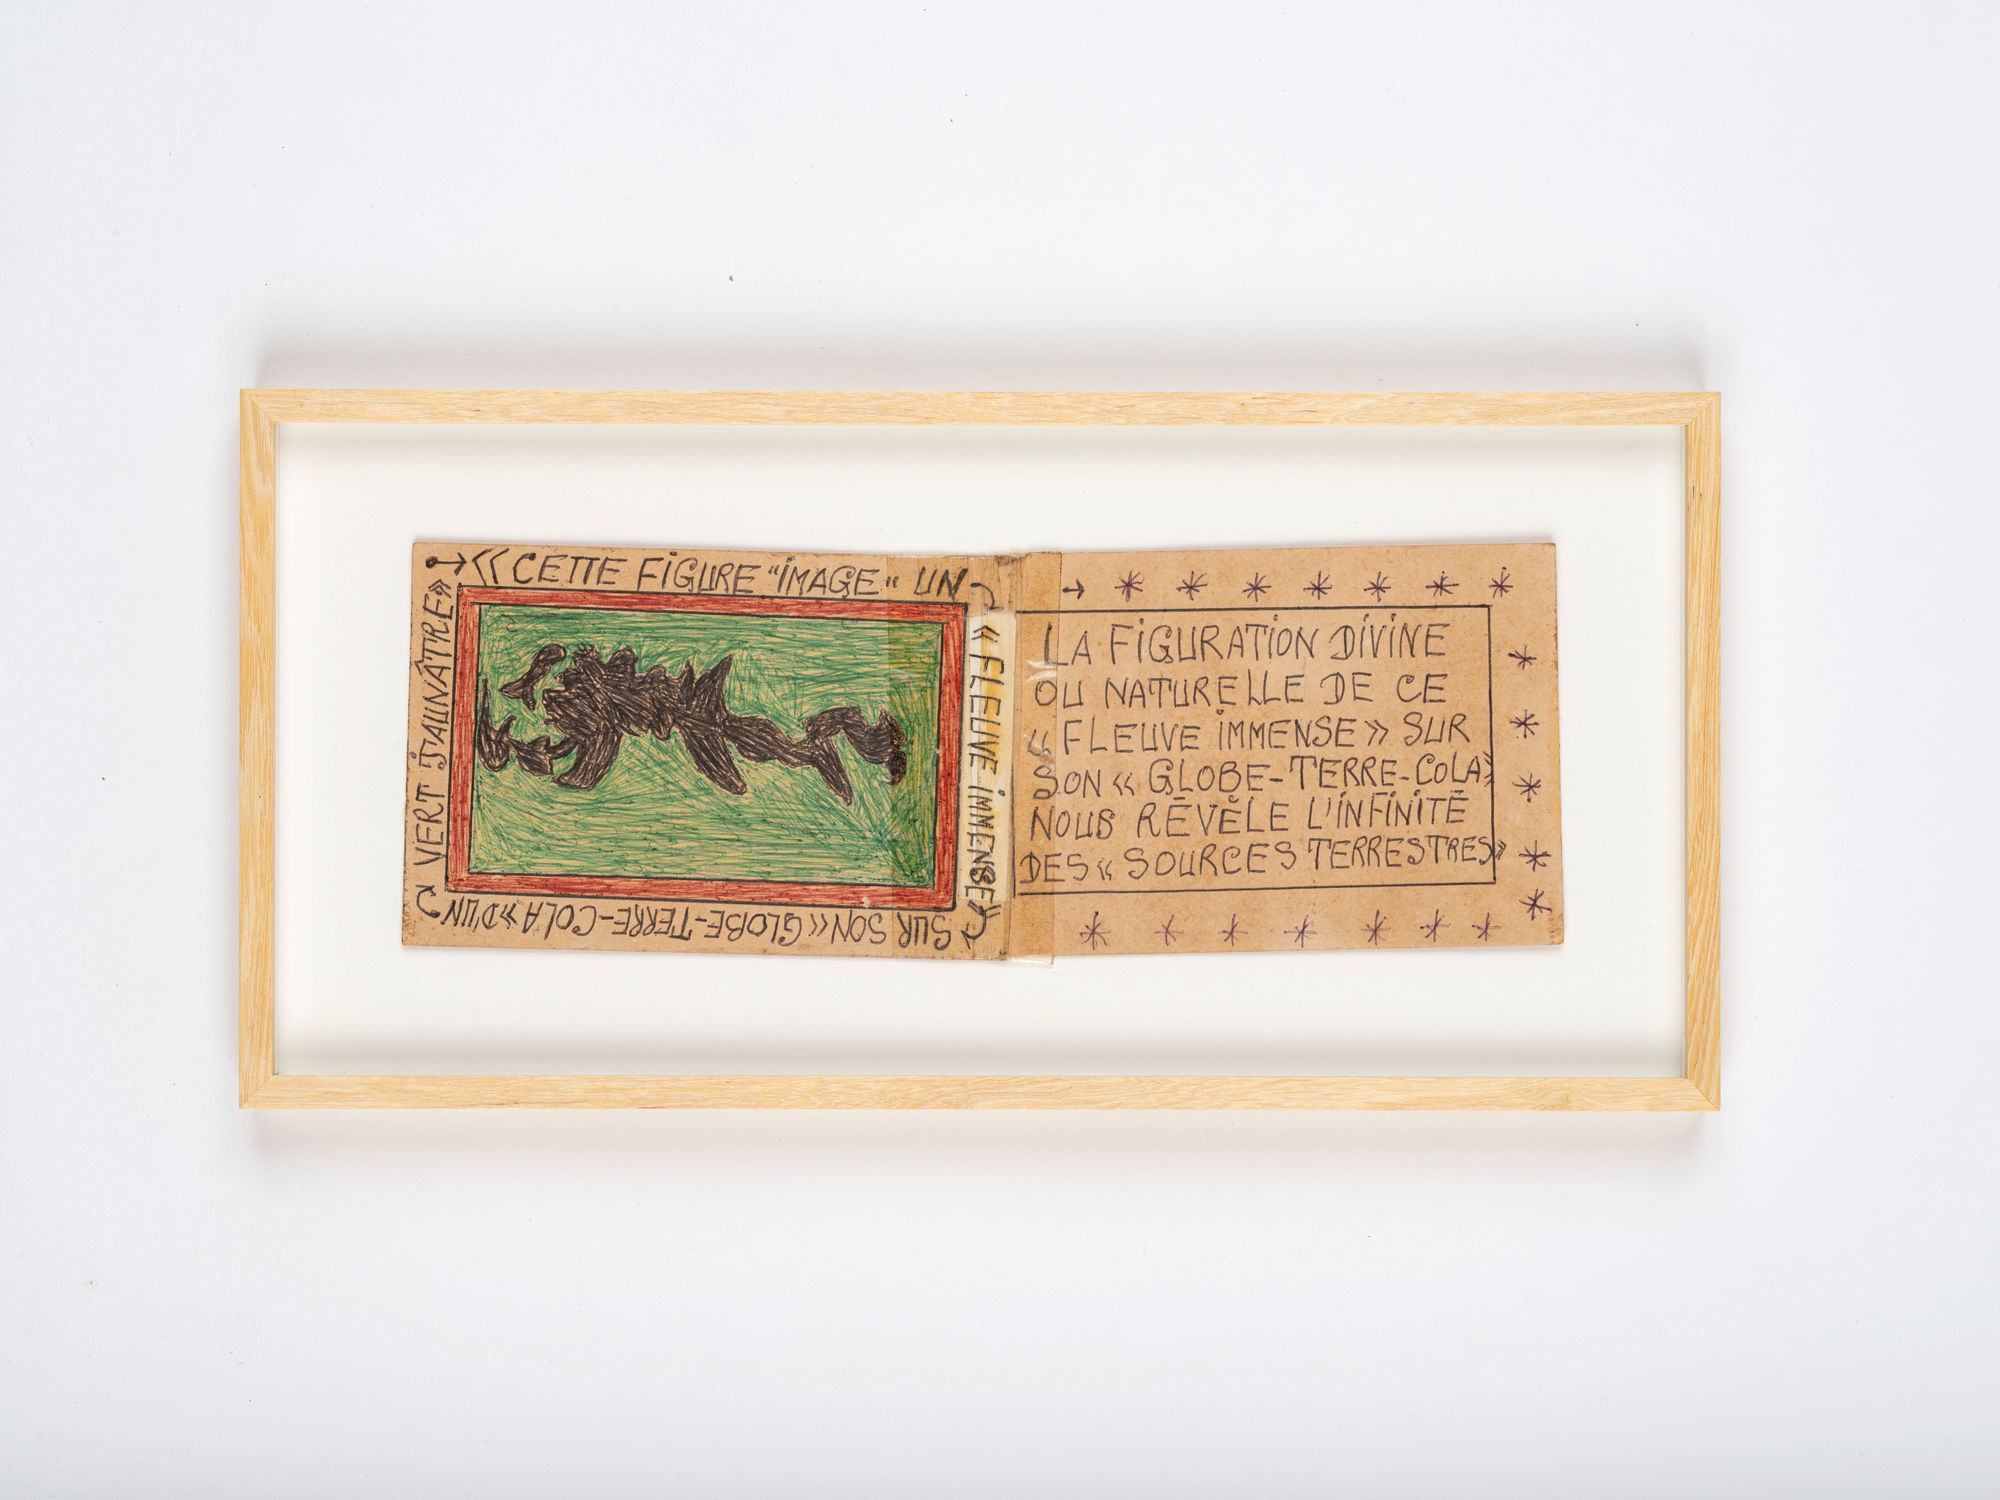 « CETTE FIGURE "IMAGE" UN
« FLEUVE IMMENSE »
SUR SON « GLOBE-TERRE-COLA » D'UN
VERT JAUNÂTRE »
LA FIGURATION DIVINE
OU NATURELLE DE CE
« FLEUVE IMMENSE » SUR
SON « GLOBE-TERRE-COLA»
NOUS RÉVÈLE L'INFINITÉ
DES « SOURCES TERRESTRES»